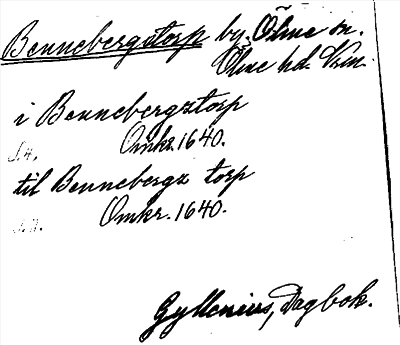 Bennebergstorp by. Ölme sn.
Ölme hd. Vrm.
i Bennebergztorp
Omkr. 1640.
til Bennebergz torp
Omkr. 1640.
Gyllenius, Dagbok.